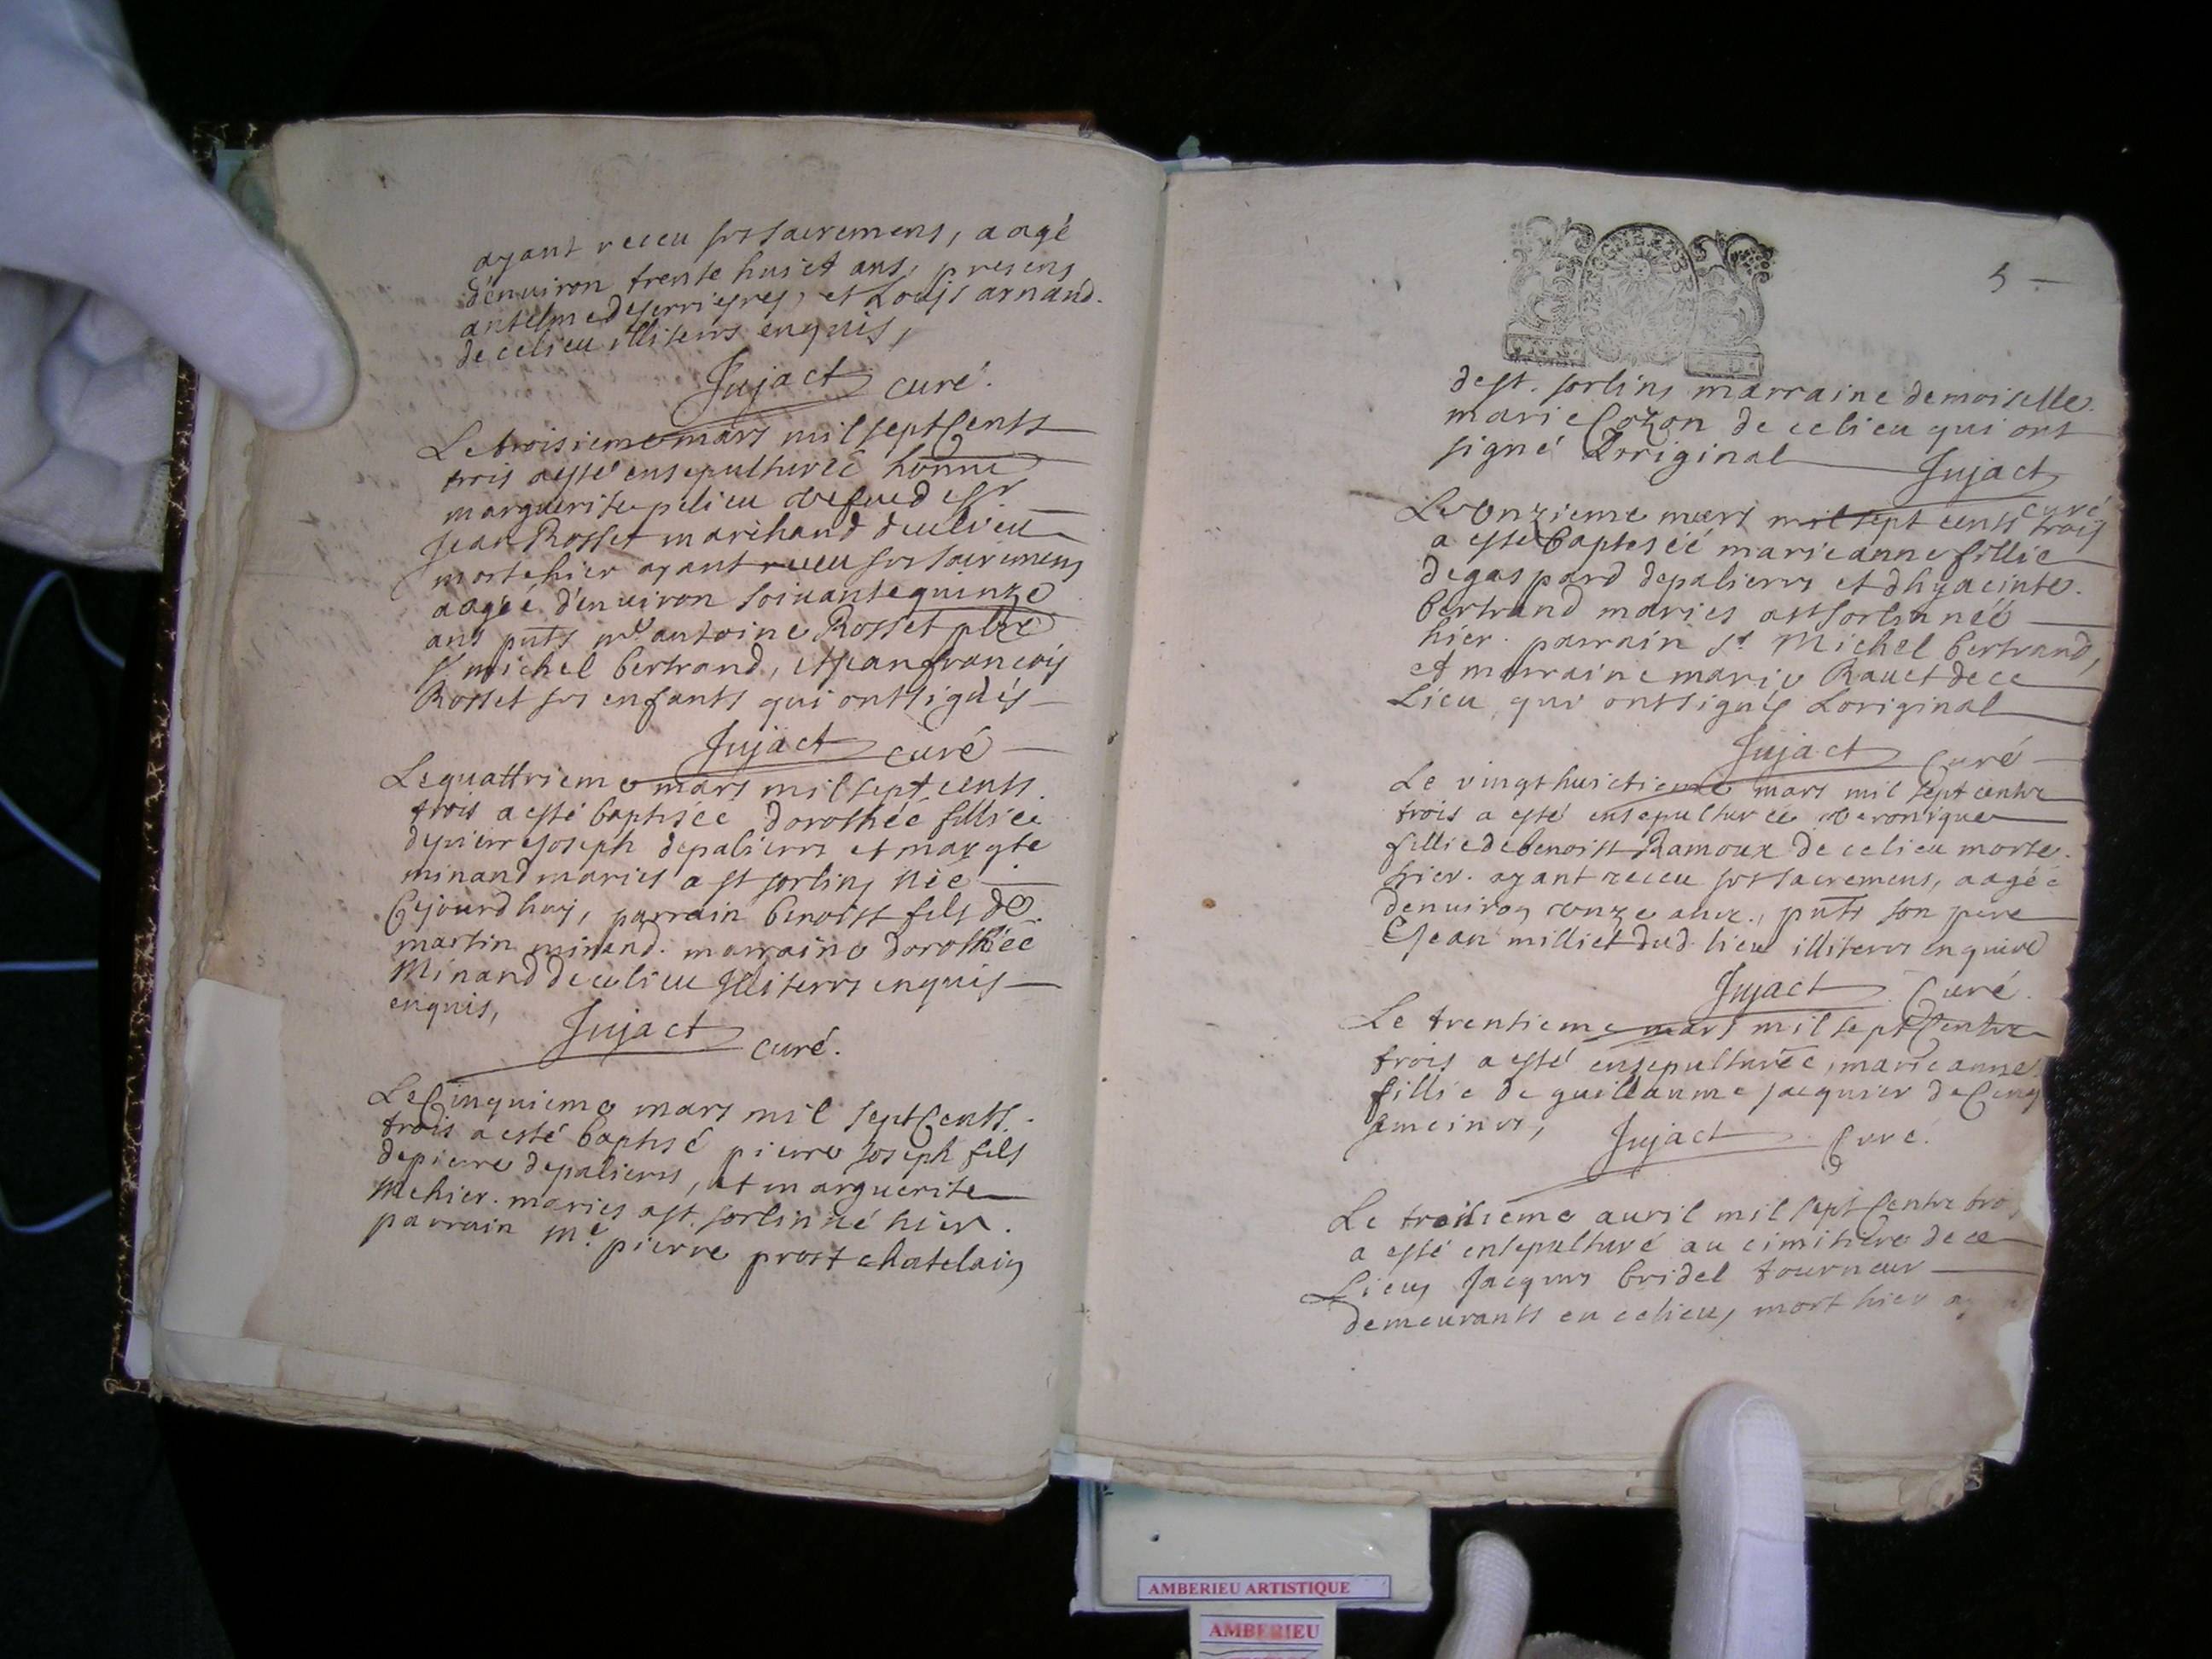 ayant receu ses sacremens, aagé
d'enuiron trente huict ans, presens
antelme deserrieres, et Louys arnand.
de ce lieu illiteres enquis,
Jujact curé.
Le troisieme mars mil sept Cents
trois a esté ensepulturée honne
marguerite pelieu vefue de sr
Jean Rosset marchand de ce lieu
morte hier ayant receu ses sacremens
aagée d'enuiron soixante quinze
ans pnts mre antoine Rosset pbre
sr michel bertrand, et Jean francois
Rosset ses enfants qui ont signés
Jujact curé
Le quattrieme mars mil sept cents.
trois a esté baptisée dorothée fillie
de pierre Joseph depalieres et margte
minand mariés a st sorlins née
Cejourdhuy, parrain benoist fils de
martin minand. marraine dorothée
Minand de ce lieu Illiteres enquis
enquis,
Jujact curé.
Le Cinquieme mars mil sept Cents.
trois a esté baptisé pierre Joseph fils
de pierre depalieres, et marguerite
Mehier. mariés a st. sorlin né hier.
parrain me pierre prost chatelain
5
de st. sorlins marraine demoiselle.
marie Cozon de ce lieu qui ont
signé Loriginal Jujact
curé
Le Onzieme mars mil sept cents trois
a esté baptisée marieanne fillie
de gaspard depalieres et d'hyacinte.
bertrand mariés a st sorlin née
hier. parrain sr Michel bertrand,
et marraine marie Rauet de ce
Lieu qui ont signés Loriginal
Jujact Curé
Le vingthuictieme mars mil sept centz
trois a esté ensepulturée veronique
fillie de benoist Ramoux de ce lieu morte.
hier. ayant receu ses sacremens, aagée
denuiron onze anz., pnts son pere
Et Jean milliet dud. lieu illiteres enquis
Jujact Curé.
Le trentieme mars mil sept Centz
trois a esté ensepulturée, marieanne
fillie de guillaume Jacquier de Cinq
semeines, Jujact Curé.
Le troisieme auril mil sept Centz
a esté ensepulturé au cimitiere de ce
Lieu, Jacques bridel tourneur
demeurants en ce lieu, mort hier
AMBERIEU ARTISTIQUE
AMBERIEU